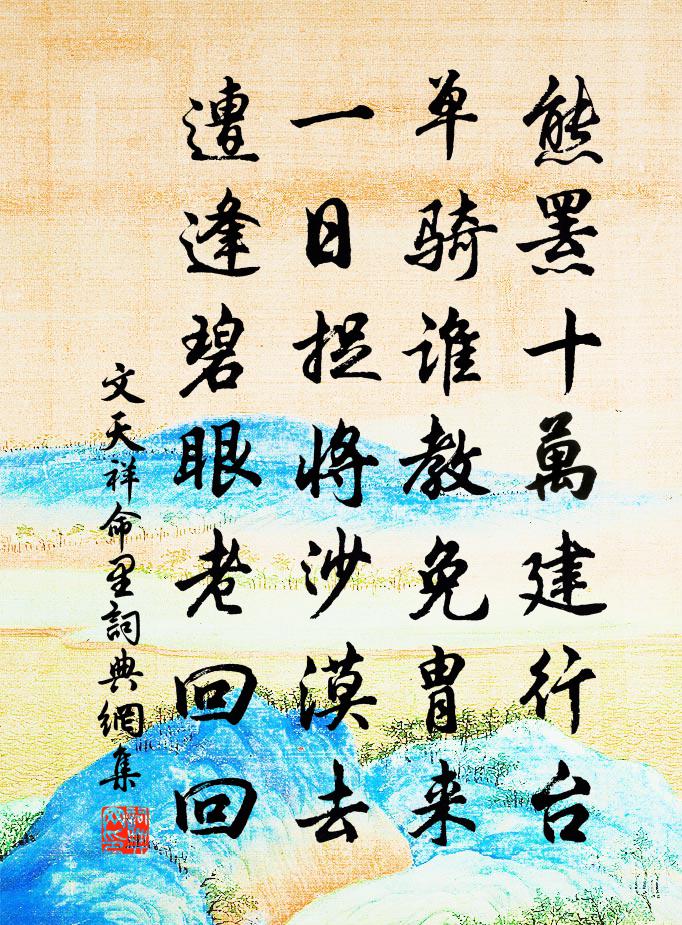 熊罴十萬建行台
单骑谁教免胄来
一日捉将沙漠去
遭逢碧眼老回回
文天祥命里詞典網集